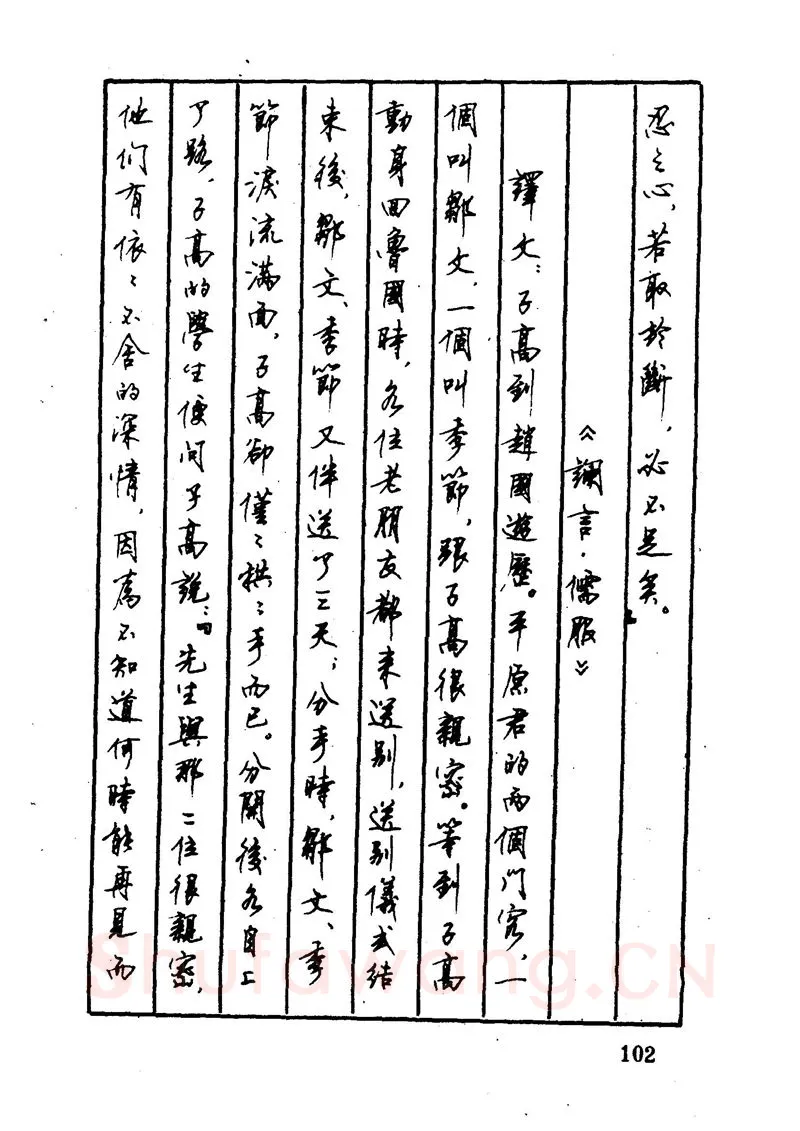 忍之心,若取於斷,必不足矣。
《讕言·儒服》
譯文:子高到趙國遊歷。平原君的兩個門客,一
個叫鄒文,一個叫季節,跟子高很親密。等到子高
動身回魯國時,各位老朋友都來送別,送別儀式結
束後,鄒文、季節又伴送了三天;分手時,鄒文、季
節淚流滿面,子高卻僅〻拱〻手而已。分開後各自上
了路,子高的學生便問子高說:“先生與那二位很親密,
他們有依〻不舍的深情,因為不知道何時能再見而
Shufawang.CN
102